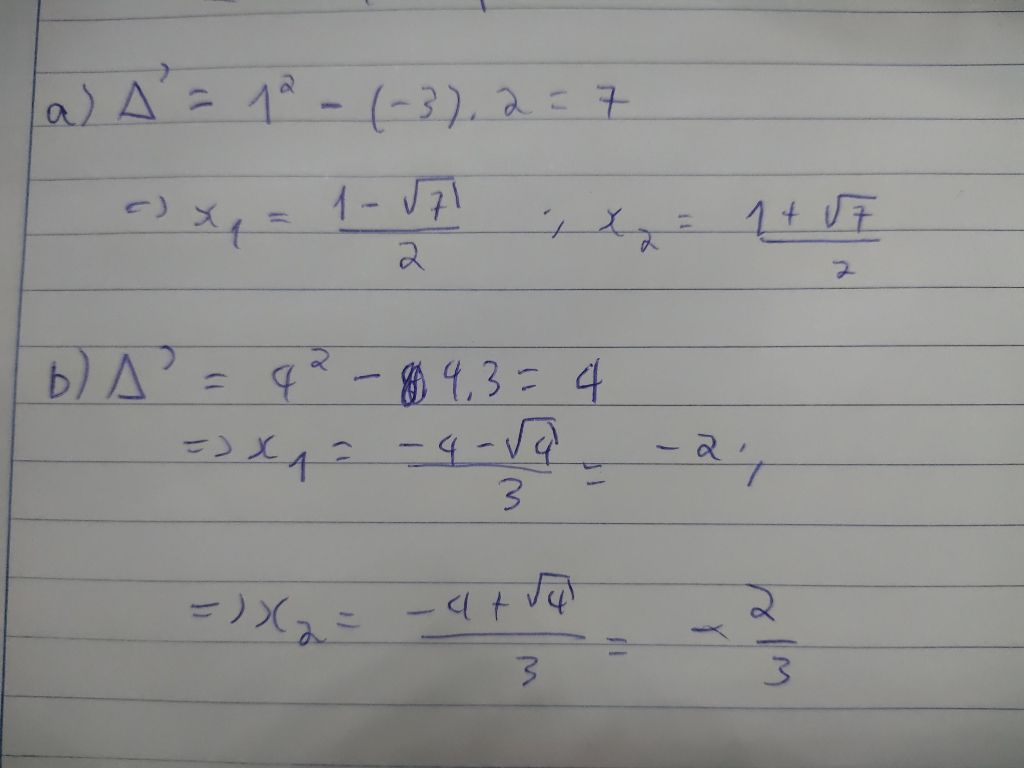 a) Δ' = 1² - (-3). 2 = 7
=> x₁ = (1 - √7)/2 ; x₂ = (1 + √7)/2
b) Δ' = 4² - 4.3 = 4
=> x₁ = (-4 - √4)/3 = -2 ;
=> x₂ = (-4 + √4)/3 = - 2/3